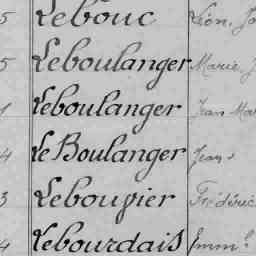 5 Lebouc Léon, Jo
5 Leboulanger Marie J
1 Leboulanger Jean Mar
4 Le Boulanger Jean
3 Lebouvier Frédéric
4 Lebourdais Emml